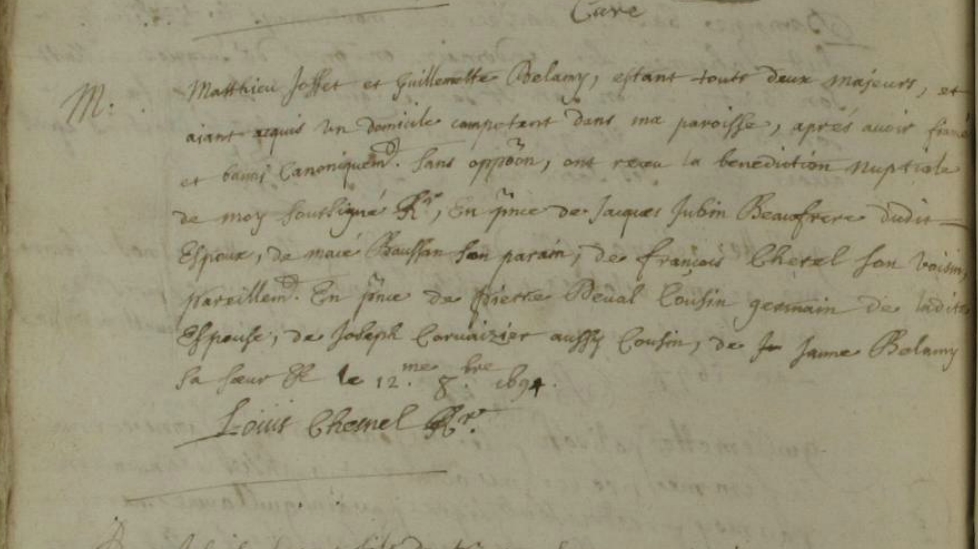 Cure
M: Matthieu Josset et Guillemette Belamy, estant touts deux majeurs, et
aiant acquis un domicile competant dans ma paroisse, aprés avoir fiancé
et bannis Canoniquemt. sans oppõon, ont receu la benediction nuptiale
de moy soussigné Rr, En pñce de Jacques Jubin Beaufrere dudit
Espoux, de macé Baussan son parain, de françois Cherel son voisin,
pareillemt. En pñce de pierre Deval Cousin germain de ladite
Espouse, de Joseph Corvaizier aussy Cousin, de Janne Belamy
sa sœur le 12.me 8.bre 1694.
Louis Chesnel Rr.